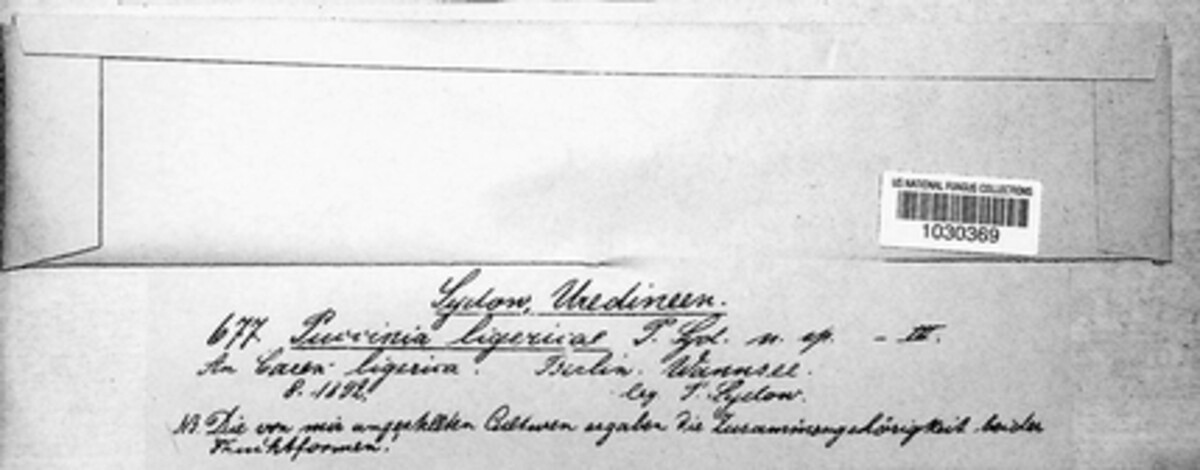 US NATIONAL FUNGUS COLLECTIONS
1030369
Sydow, Uredineen.
677 Puccinia ligericae P. Syd. n. sp. - III.
An Carex ligerica. Berlin. Wannsee.
8. 1892. leg. P. Sydow.
NB Die von mir angestellten Culturen ergaben die Zusammengehörigkeit beider
Fruchtformen.